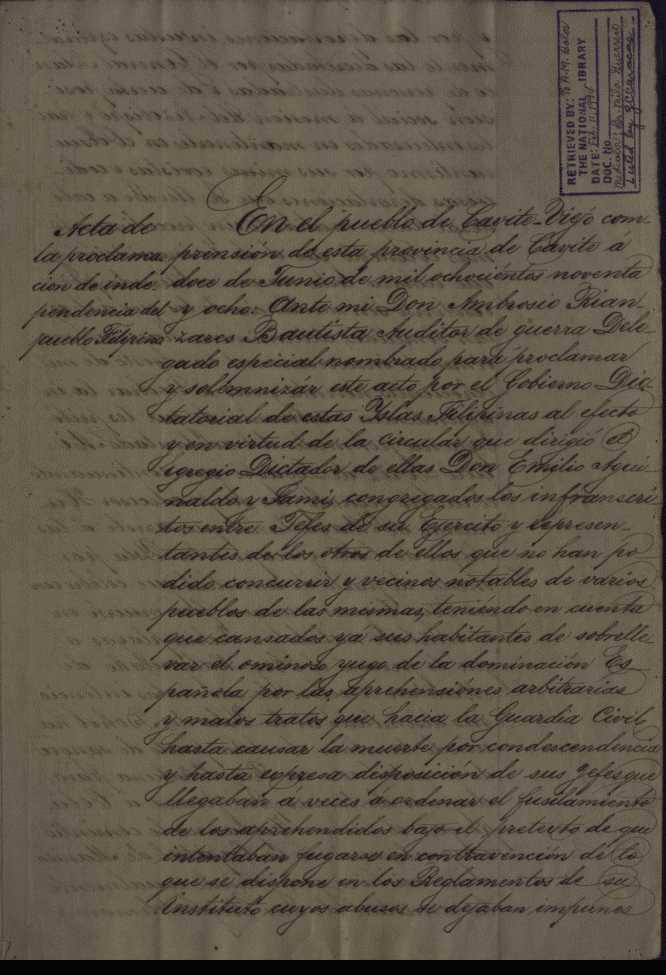 RETRIEVED BY:
THE NATIONAL LIBRARY
DATE: Feb. 11, 1994
DOC. No.
Acta de
la proclama
cion de inde
pendencia del
pueblo Filipino
En el pueblo de Cavite-Viejo com-
prensión de esta provincia de Cavite á
doce de Junio de mil ochocientos noventa
y ocho: Ante mi Don Ambrosio Rian-
zares Bautista Auditor de guerra Dele-
gado especial nombrado para proclamar
y solemnizar este acto por el Gobierno Dic-
tatorial de estas Yslas Filipinas al efecto
y en virtud de la circular que dirigió el
egregio Dictador de ellas Don Emilio Agui-
naldo y Famy, congregados los infrascri-
tos entre Jefes de su Ejercito y represen-
tantes de los otros de ellos que no han po-
dido concurrir y vecinos notables de varios
pueblos de las mismas, teniendo en cuenta
que cansados ya sus habitantes de sobrelle-
var el ominoso yugo de la dominación Es-
pañola por las aprehensiónes arbitrarias
y malos tratos que hacia la Guardia Civil
hasta causar la muerte por condescendencia
y hasta expresa disposición de sus gefes que
llegaban á veces á ordenar el fusilamiento
de los aprehendidos bajo el pretexto de que
intentaban fugarse en contravención de lo
que se dispone en los Reglamentos de su
instituto, cuyos abusos se dejaban impunes